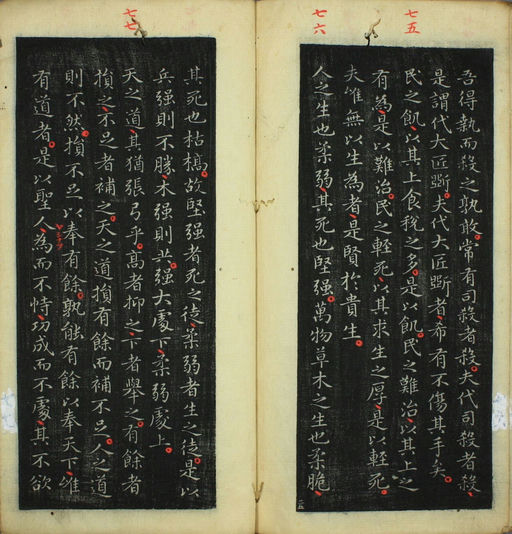 七五
吾得執而殺之孰敢常有司殺者殺夫代司殺者殺
是謂代大匠斲夫代大匠斲者希有不傷其手矣
民之飢以其上食稅之多是以飢民之難治以其上之
有為是以難治民之輕死以其求生之厚是以輕死
夫唯無以生為者是賢於貴生
七六
人之生也柔弱其死也堅强萬物草木之生也柔脆
其死也枯槁故堅强者死之徒柔弱者生之徒是以
兵强則不勝木强則共强大處下柔弱處上
七七
天之道其猶張弓乎高者抑之下者舉之有餘者
損之不足者補之天之道損有餘而補不足人之道
則不然損不足以奉有餘孰能有餘以奉天下唯
有道者是以聖人為而不恃功成而不處其不欲